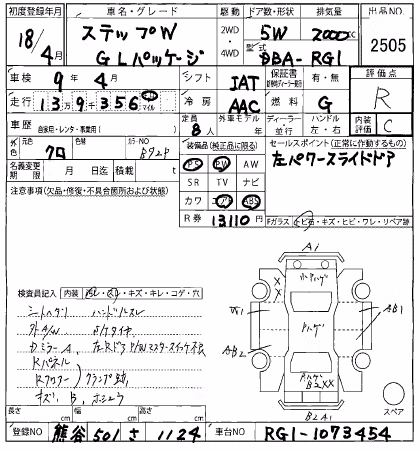 初度登録年月 車名・グレード 駆動 ドア数・形状 排気量 出品NO
18/4月 ステップW 2WD・4WD 5W 2000cc 2505
GLパッケージ 型式 DBA-RG1
車検 9年4月 シフト IAT 保証書 有・無 評価点 R
走行 13万9千356 km マイル 冷房 AAC 燃料 G
車歴 自家用・レンタ・事業用( ) 定員 8人 外車モデル 年 ディーラー・並行 ハンドル 左・右 内装評価 C
外色 元色 クロ 色替 カラーNO B92P 装備品(純正品に限る) セールスポイント(正常に作動するもの)
PS PW AW 左パワースライドドア
名義変更期限 月 日迄 積載量 t SR TV ナビ
注意事項(欠品・修復・不具合箇所および状態) カワ エアB ABS
R券 13110円 Fガラス トビ石・キズ・ヒビ・ワレ・リペア跡
A1
検査員記入 内装 ヨゴレ・スレ・キズ・キレ・コゲ・穴
シートヘタリ ハンドルスレ
外A/W
ウミラーA、左Rドア P/Wマスタースイッチ不良
Rパネル
Rフロアー
キズ、B、
W1 AB1
AB2
B2A1
スペア
長さ cm 幅 cm 高さ cm
登録NO 熊谷 501 さ 1124 車台NO RG1-1073454